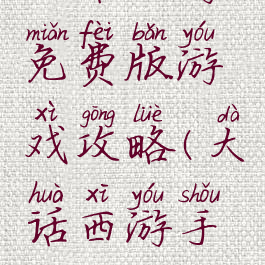 miǎn fèi bǎn yóu
免费版游
xì gōng lüè dà
戏攻略(大
huà xī yóu shǒu
话西游手